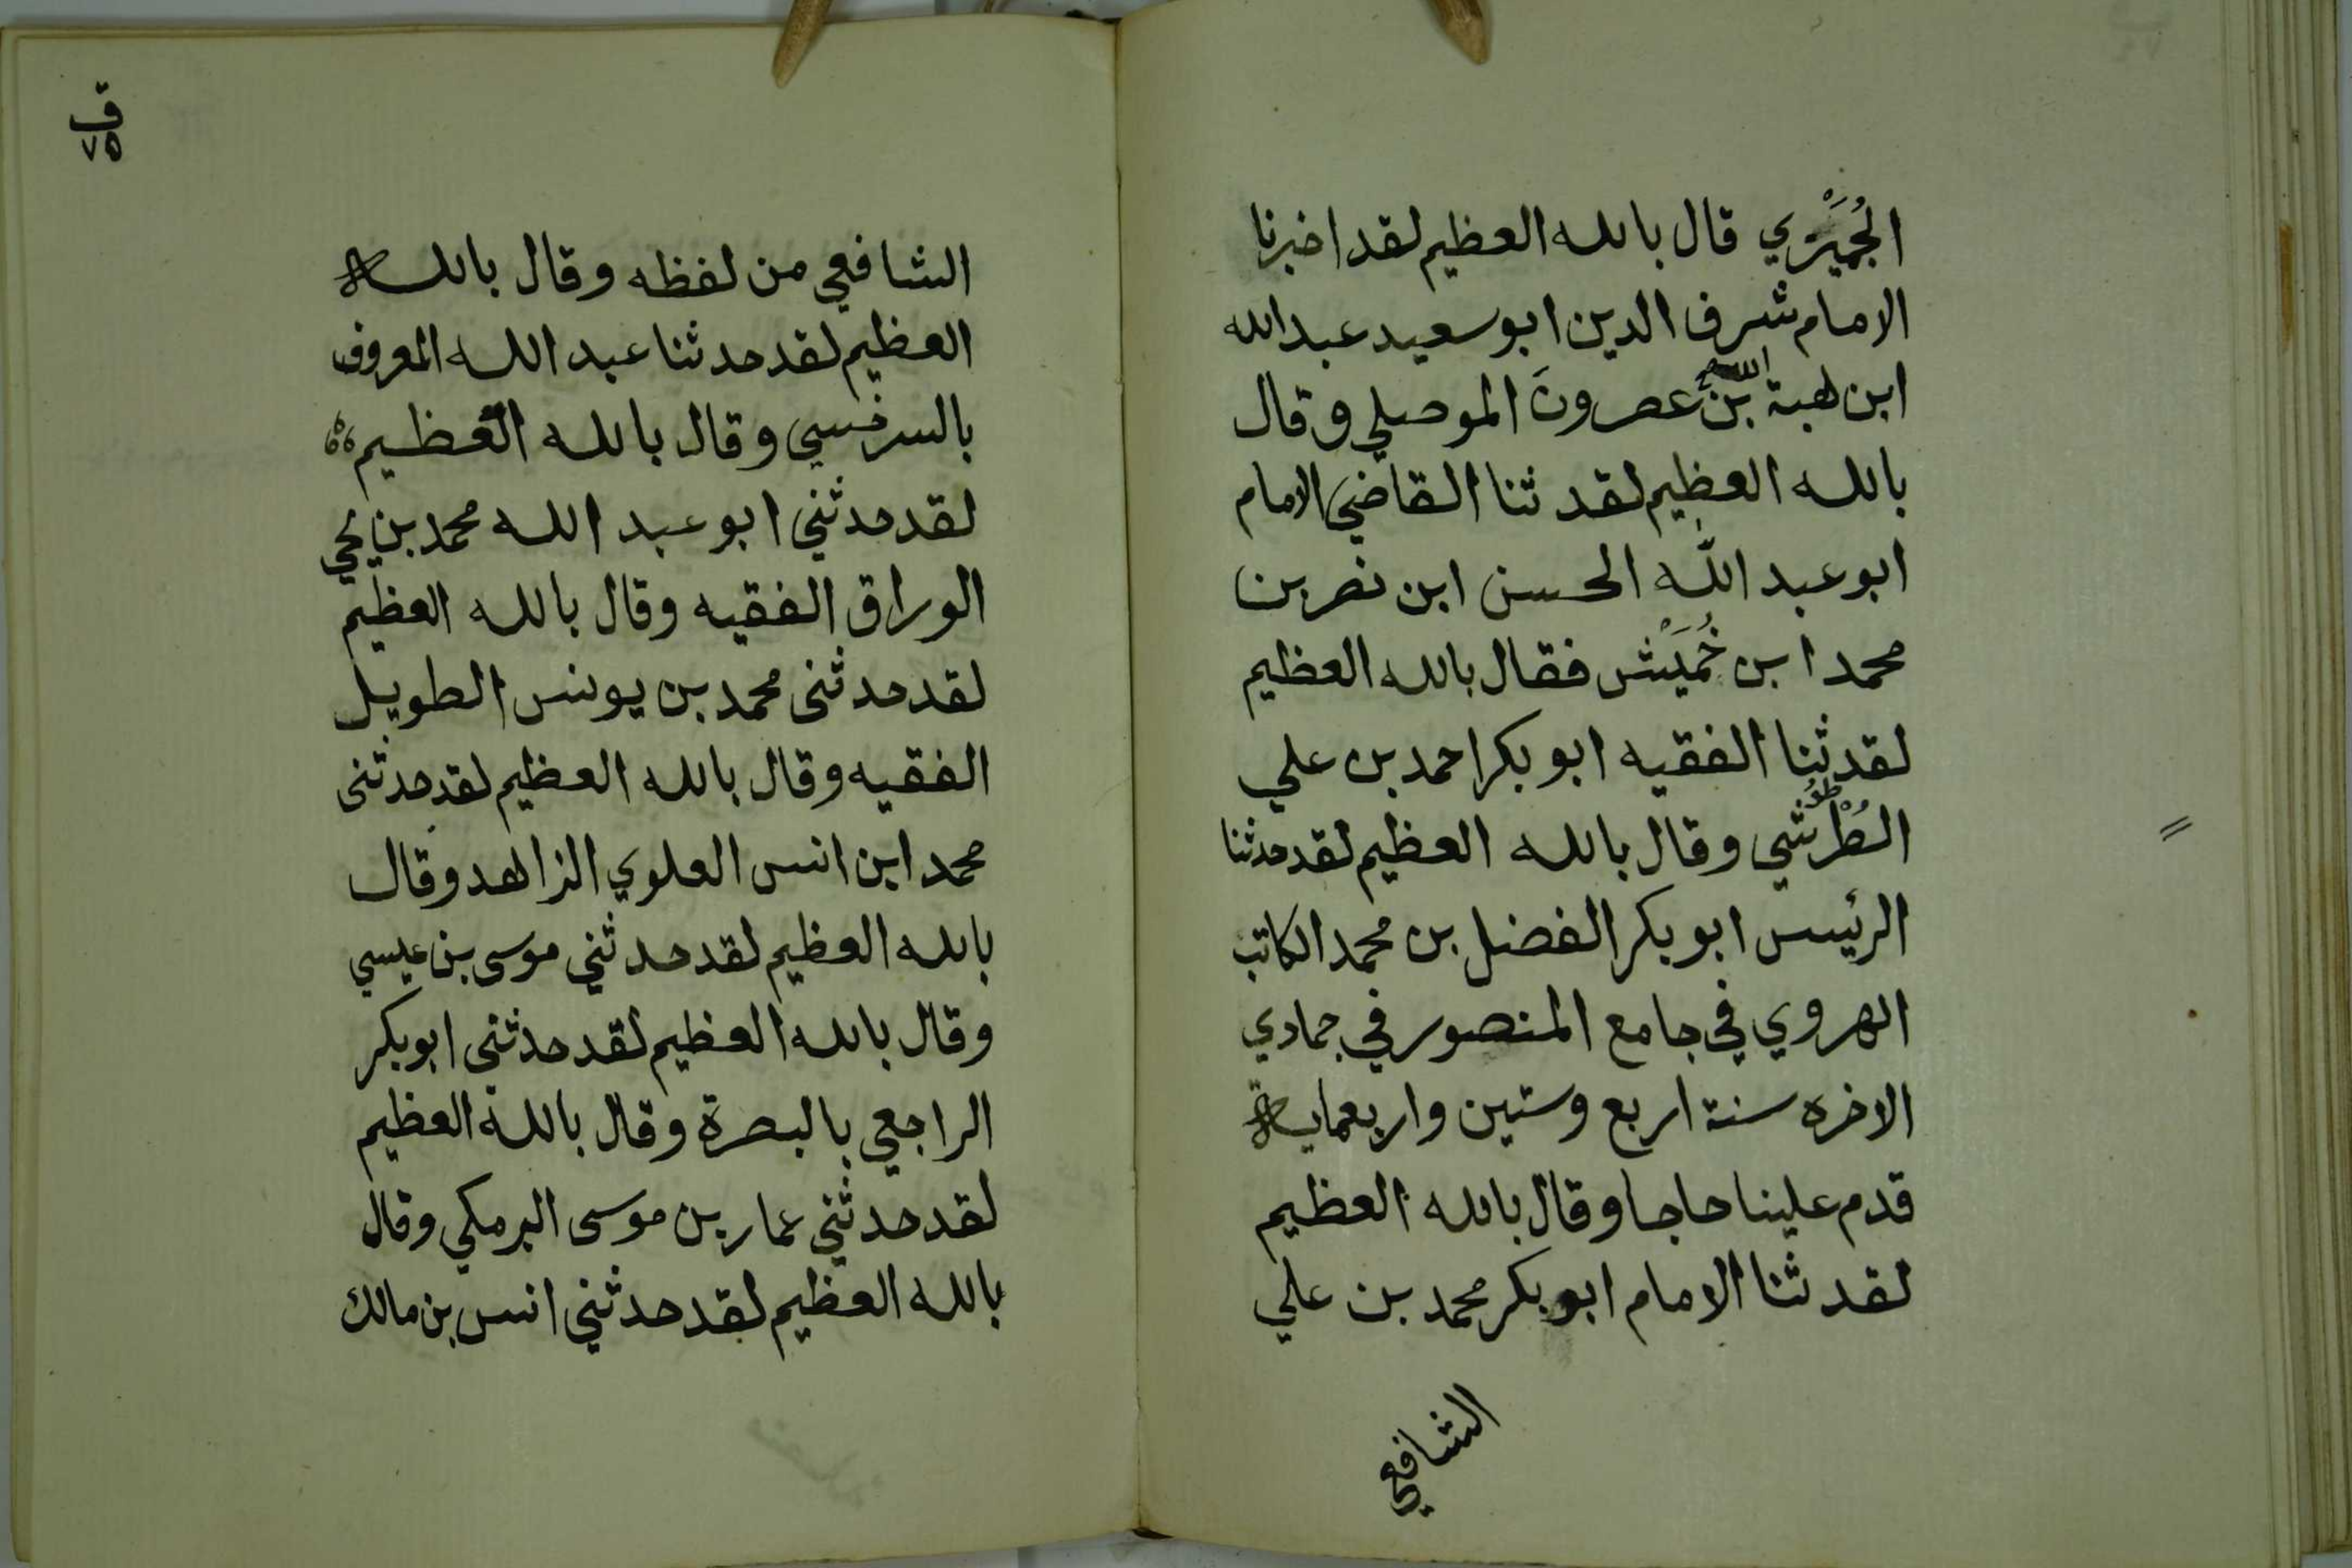 الجُمَّيْزي قال بالله العظيم لقد اخبرنا
الامام شرف الدين ابو سعيد عبد الله
ابن هبة الله بن عصرون الموصلي وقال
بالله العظيم لقد ثنا القاضي الامام
ابو عبد الله الحسن ابن نصر بن
محمد ابن خُمَيْش فقال بالله العظيم
لقد ثنا الفقيه ابو بكر احمد بن علي
الطُرْثي وقال بالله العظيم لقد حدثنا
الرئيس ابو بكر الفضل بن محمد الكاتب
الهروي في جامع المنصور في جمادي
الاخره سنة اربع وستين واربعماية
قدم علينا حاجا وقال بالله العظيم
لقد ثنا الامام ابو بكر محمد بن علي
الشافعي
ق
٧٥
الشافعي من لفظه وقال بالله
العظيم لقد حدثنا عبد الله المعروف
بالسرخسي وقال بالله العظيم
لقد حدثني ابو عبد الله محمد بن يحي
الوراق الفقيه وقال بالله العظيم
لقد حدثنى محمد بن يونس الطويل
الفقيه وقال بالله العظيم لقد حدثنى
محمد ابن انس العلوي الزاهد وقال
بالله العظيم لقد حدثني موسى بن عيسي
وقال بالله العظيم لقد حدثنى ابو بكر
الراجعي بالبصرة وقال بالله العظيم
لقد حدثني عمار بن موسى البرمكي وقال
بالله العظيم لقد حدثني انس بن مالك